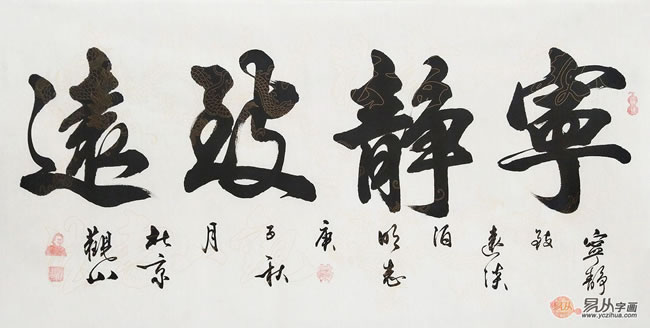 寧靜致遠
寧靜
致
遠淡
泊
明志
庚
子秋
月
於京
觀山
易从字画
www.yczihua.com